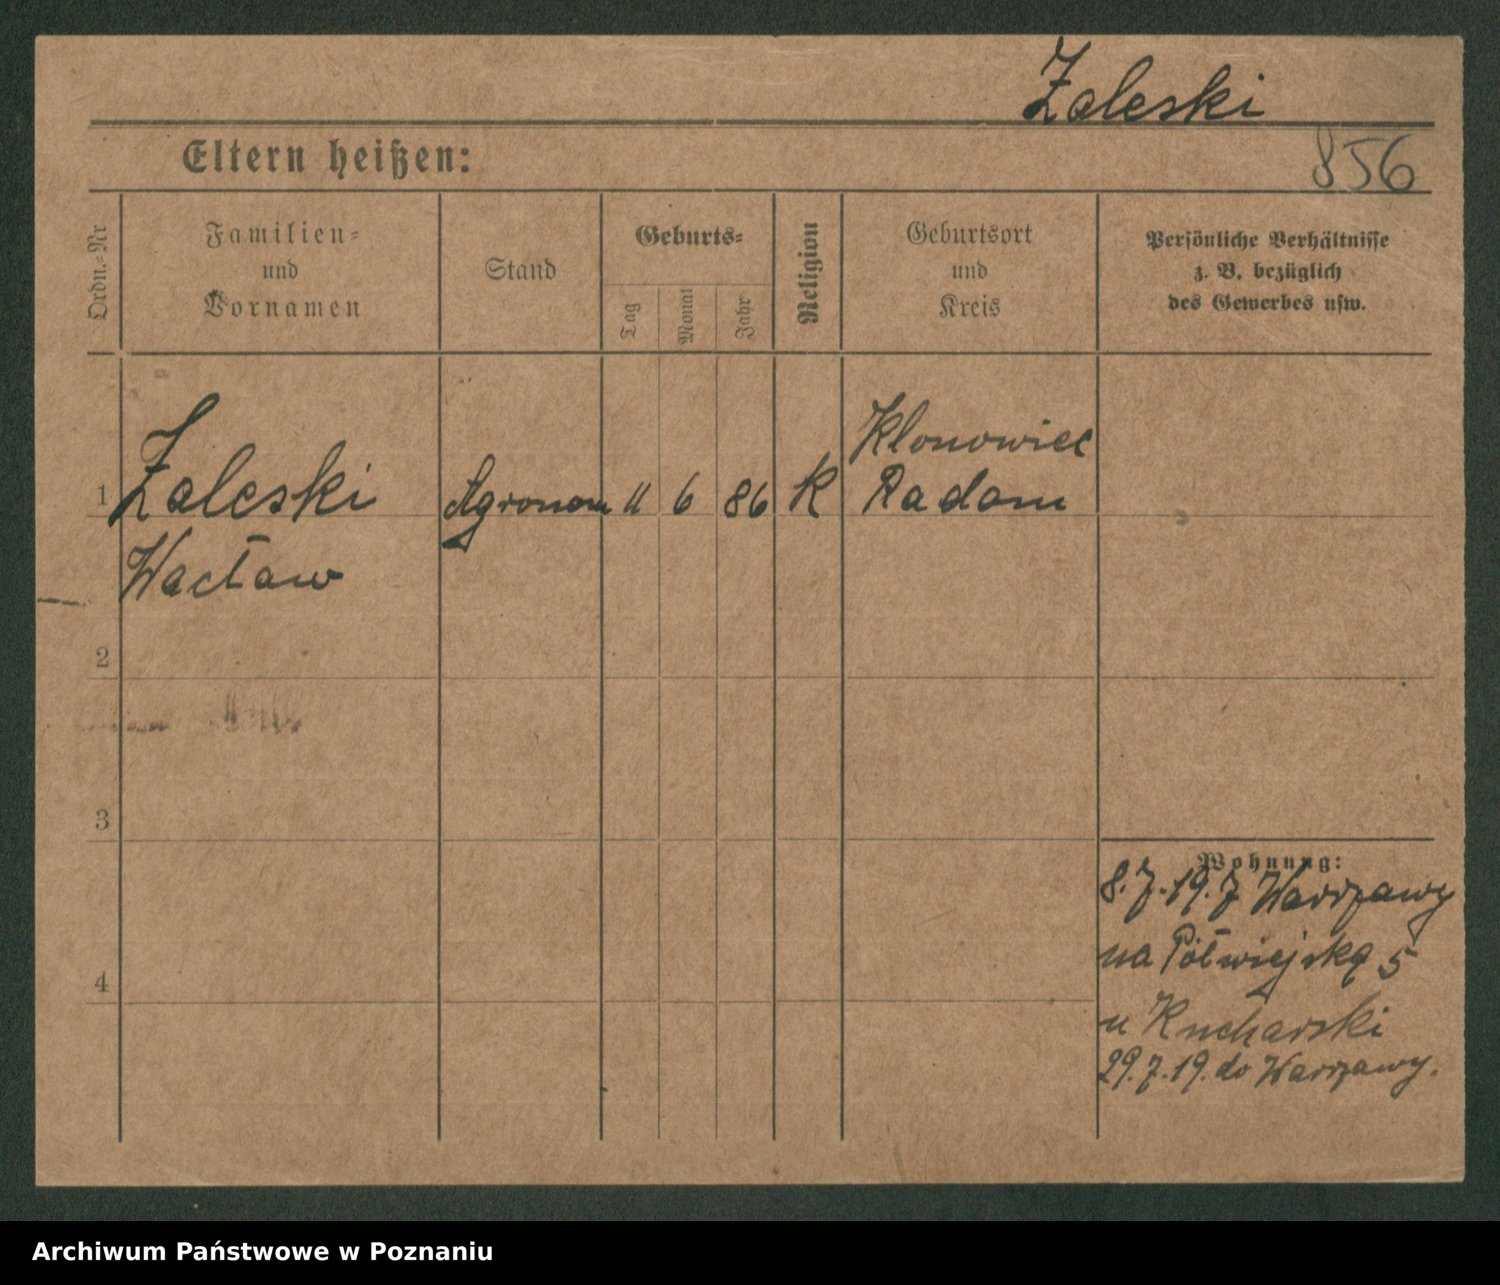 Zaleski
Eltern heißen:
856
Ordn.-Nr
Familien-
und
Vornamen
Stand
Geburts-
Tag
Monat
Jahr
Religion
Geburtsort
und
Kreis
Persönliche Verhältnisse
z. B. bezüglich
des Gewerbes usw.
1
Zaleski
Wacław
Agronom
11
6
86
K
Klonowiec
Radom
2
3
4
Wohnung:
8.7.19. z Warszawy
na Półwiejską 5
u Kucharski
29.7.19. do Warszawy.
Archiwum Państwowe w Poznaniu